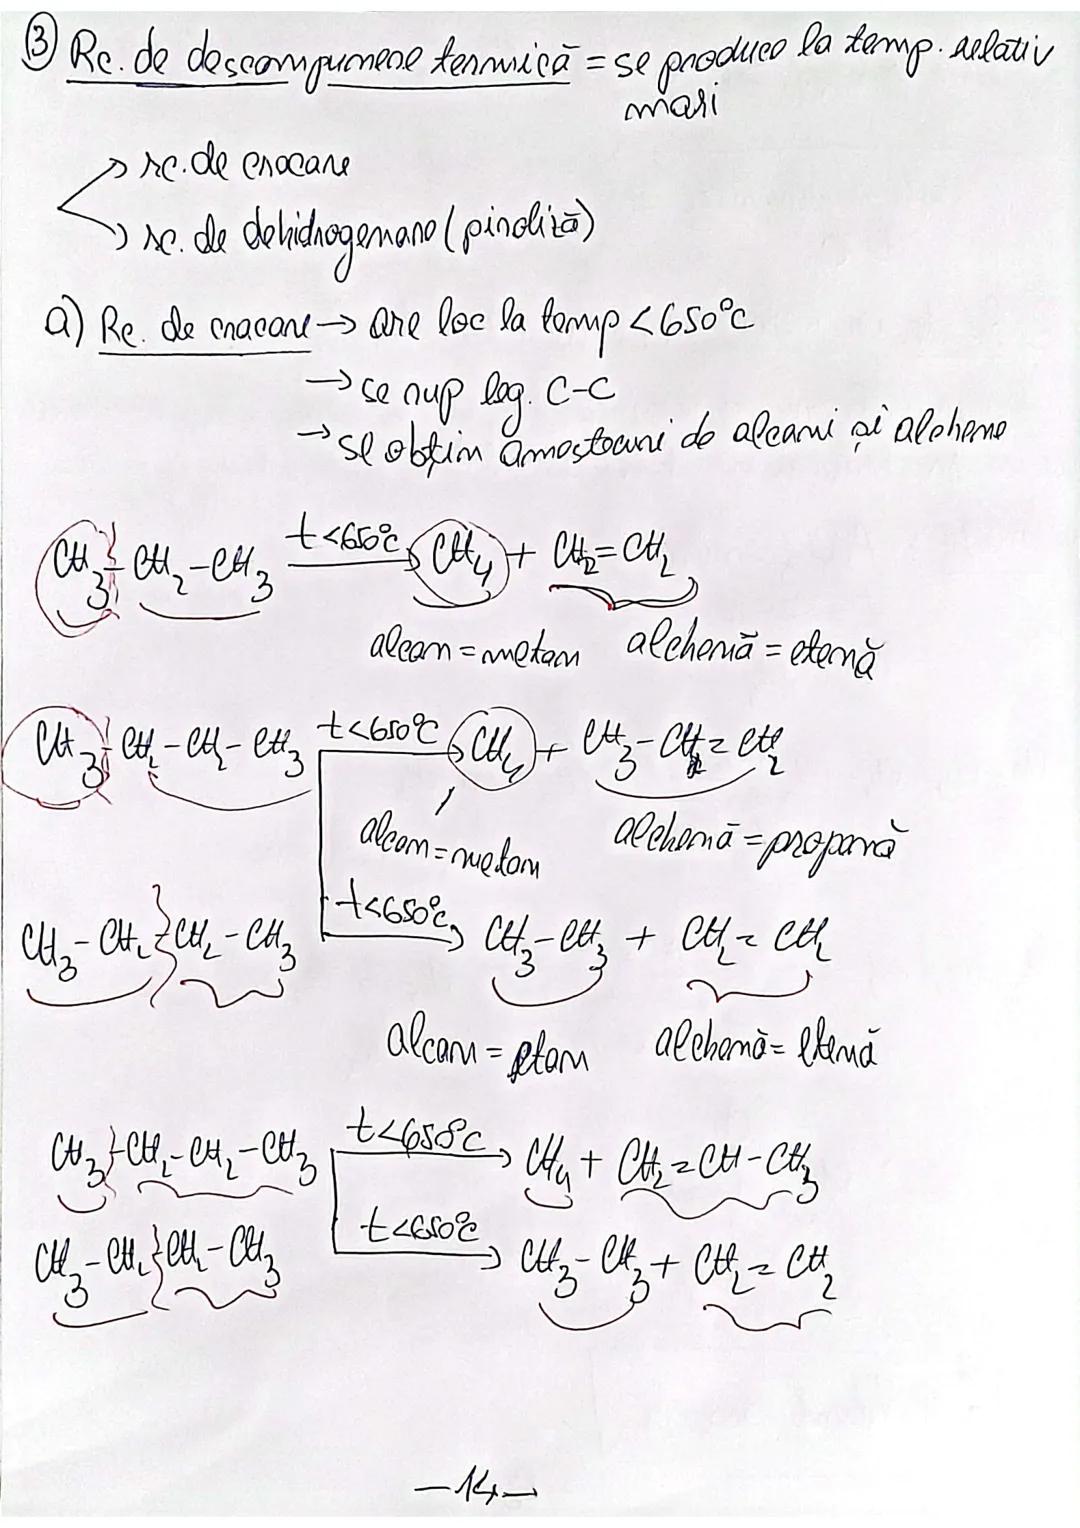 ③ Rc. de descompunere termică = se produce la temp. relativ
mari
→ rc. de cracare
→ rc. de dehidrogenare (piroliză)
a) Rc. de cracare → are loc la temp < 650°C
→ se rup leg. C-C
→ se obțin amestecuri de alcani și alchene
CH₃ - CH₂ - CH₃ t<650°C → CH₄ + CH₂ = CH₂
alcan = metan alchenă = etenă
CH₃ - CH₂ - CH₂ - CH₃ t<650°C → CH₄ + CH₃ - CH = CH₂
alcan = metan alchenă = propenă
CH₃ - CH₂ - CH₂ - CH₃ t<650°C → CH₃ - CH₃ + CH₂ = CH₂
alcan = etan alchenă = etenă
CH₃ - CH₂ - CH₂ - CH₃ t<650°C → CH₄ + CH₂ = CH - CH₃
CH₃ - CH₂ - CH₂ - CH₃ t<650°C → CH₃ - CH₃ + CH₂ = CH₂
-14-